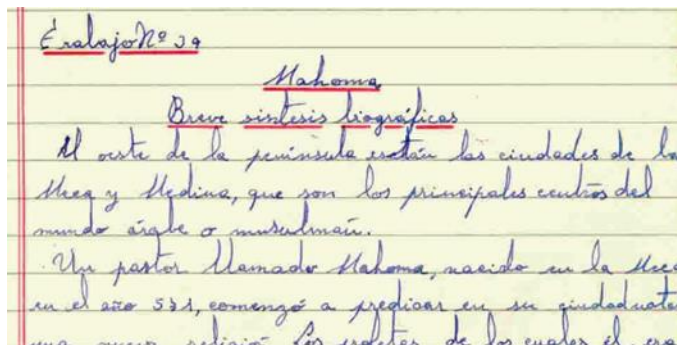 Trabajo Nº 39
Mahoma
Breve sintesis biográficas
Al oeste de la peninsula están las ciudades de la
Meca y Medina, que son los principales centros del
mundo árabe o musulmán.
Un pastor llamado Mahoma, nacido en la Meca
en el año 571, comenzó a predicar en su ciudad natal
una nueva religió Los profetas de los cuales él era